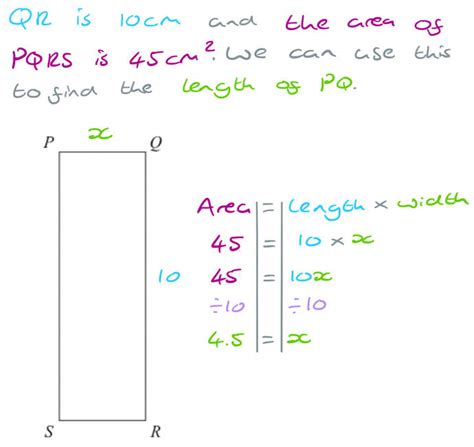 QR is 10cm and the area of
PQRS is 45cm². We can use this
to find the length of PQ.
x
P Q
Area = length × width
45 = 10 × x
10 45 = 10x
÷10 ÷10
4.5 = x
S R